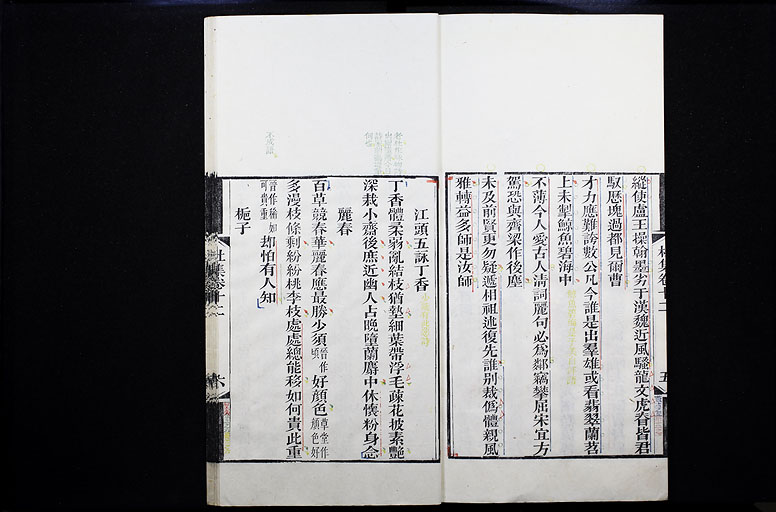 縱使盧王操翰墨劣于漢魏近風騷龍文虎脊皆君
馭歷塊過都見爾曹
才力應難誇數公凡今誰是出羣雄或看翡翠蘭苕
上未掣鯨魚碧海中
不薄今人愛古人清詞麗句必爲鄰竊攀屈宋宜方
駕恐與齊梁作後塵
未及前賢更勿疑遞相祖述復先誰別裁僞體親風
雅轉益多師是汝師
杜集卷十二
五
江頭五詠丁香
丁香體柔弱亂結枝猶墊細葉帶浮毛疎花披素艷
深栽小齋後庶近幽人占晚墮蘭麝中休懷粉身念
麗春
百草競春華麗春應最勝少須晉作頃好顏色草堂作顏色好
多漫枝條剩紛紛桃李枝處處總能移如何貴此重
晉作稀如可貴重却怕有人知
梔子
杜集卷十二
六